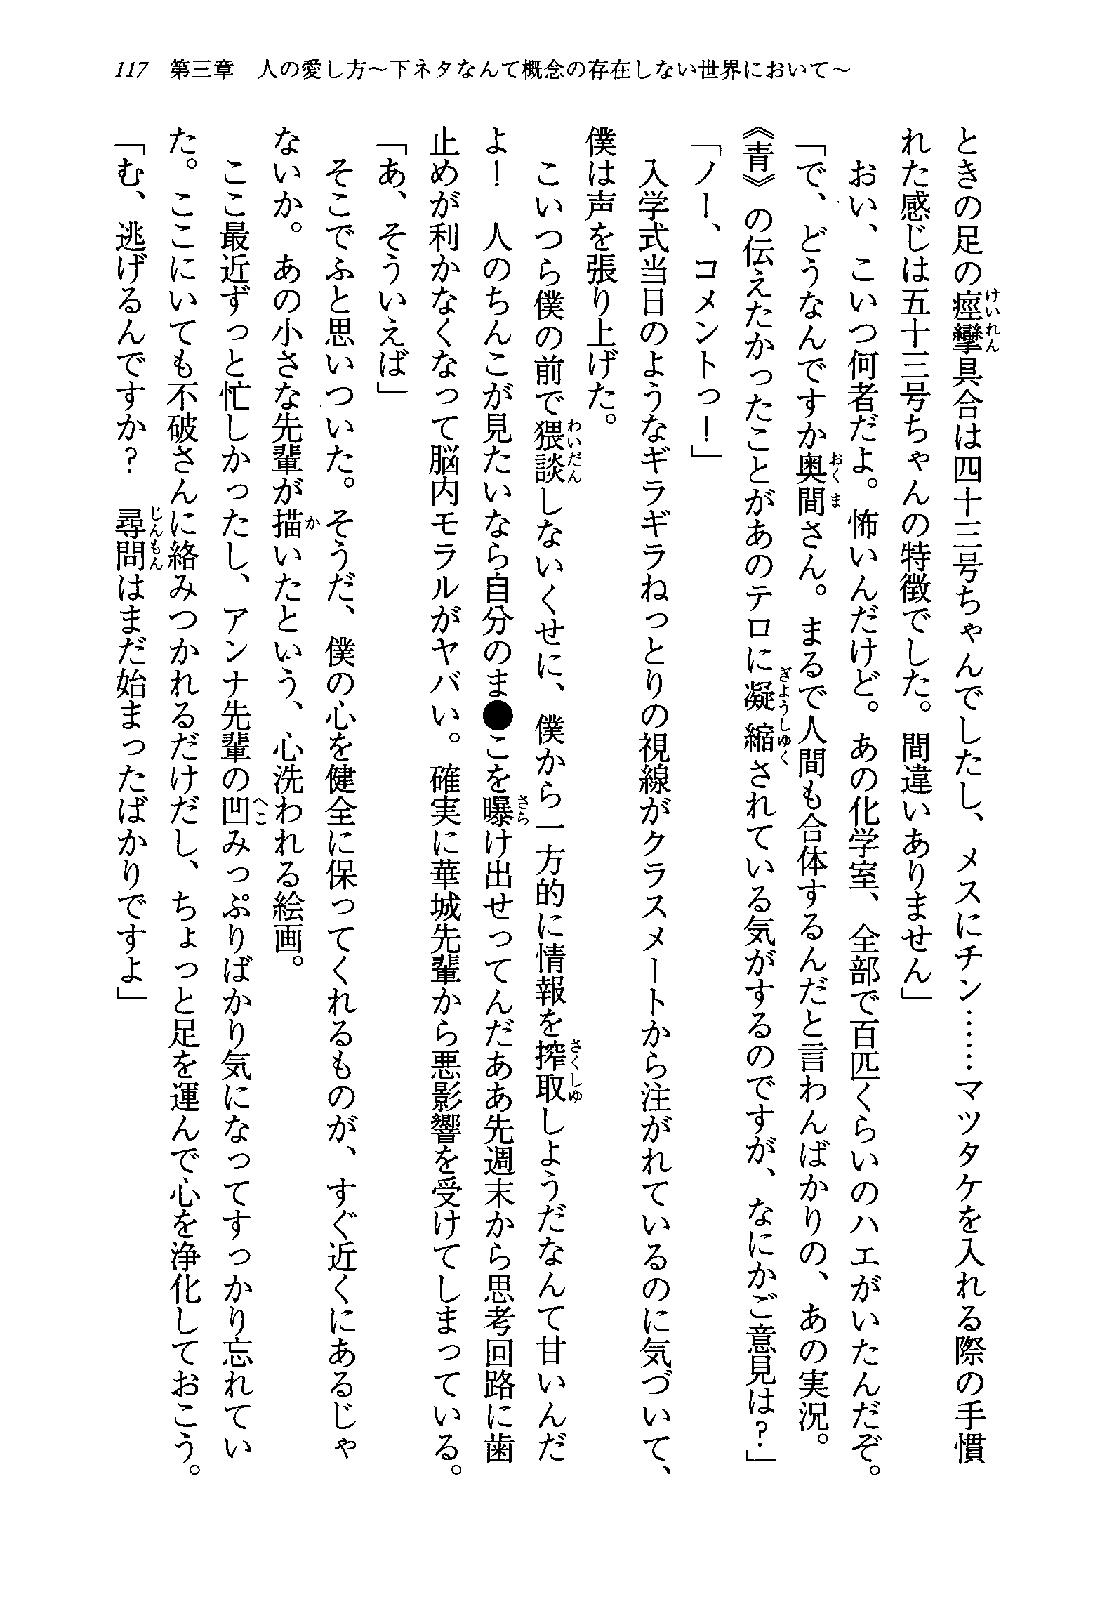 117 第三章 人の愛し方～下ネタなんて概念の存在しない世界において～
ときの足の痙攣具合は四十三号ちゃんでしたし、メスにチン……マツタケを入れる際の手慣
れた感じは五十三号ちゃんの特徴でした。間違いありません」
おい、こいつ何者だよ。怖いんだけど。あの化学室、全部で百匹くらいのハエがいたんだぞ。
「で、どうなんですか奥間さん。まるで人間も合体するんだと言わんばかりの、あの実況。
《青》の伝えたかったことがあのテロに凝縮されている気がするのですが、なにかご意見は？」
「ノー、コメントっ！」
入学式当日のようなギラギラねっとりの視線がクラスメートから注がれているのに気づいて、
僕は声を張り上げた。
こいつら僕の前で猥談しないくせに、僕から一方的に情報を搾取しようだなんて甘いんだ
よ！　人のちんこが見たいなら自分のま●こを曝け出せってんだああ先週末から思考回路に歯
止めが利かなくなって脳内モラルがヤバい。確実に華城先輩から悪影響を受けてしまっている。
「あ、そういえば」
そこでふと思いついた。そうだ、僕の心を健全に保ってくれるものが、すぐ近くにあるじゃ
ないか。あの小さな先輩が描いたという、心洗われる絵画。
ここ最近ずっと忙しかったし、アンナ先輩の凹みっぷりばかり気になってすっかり忘れてい
た。ここにいても不破さんに絡みつかれるだけだし、ちょっと足を運んで心を浄化しておこう。
「む、逃げるんですか？　尋問はまだ始まったばかりですよ」